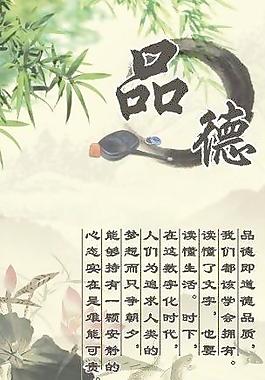 品德
品德即道德品质，
我们都该学会拥有。
读懂了文字，也要
读懂生活。时下，
在这数字化时代，
人们为追求人类的
梦想而只争朝夕，
能够持有一颗安静的
心态实在是难能可贵。